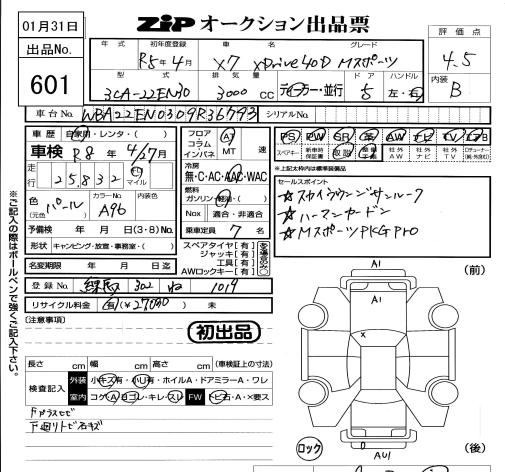 01月31日
出品No.
601
ZIP オークション出品票
評価点
4.5
内装
B
年式 初年度登録 車名 グレード
R5年4月 X7 xDrive40D Mスポーツ
型式 排気量 ドア ハンドル
3CA-22EN30 3000 CC 元・並行 5 左・右
車台No. シリアルNo.
車歴 自家用・レンタ・( )
車検 R8年4/27月
走行 25,832 km マイル
色 (元色) パール カラーNo. A96 内装色
予備検 年 月 日(3・8)No.
形状 キャンピング・放宣・事務室・( )
名変期限 年 月 日迄
登録No. 302 ね 1019
リサイクル料金 有(¥27090 ) 未
フロア コラム インパネ AT MT 速
冷房 無・C・AC・AAC・WAC
燃料 ガソリン・軽油・( )
Nox 適合・非適合
乗車定員 7 名
スペアタイヤ[有]
ジャッキ[有]
工具[有]
AWロックキー[有]
PS PW SR 革 AW ナビ TV
スペアキー 新車時保証書 取説 社外AW 社外ナビ 社外TV
*上記太枠内は標準装備品
セールスポイント
☆スカイラウンジサンルーフ
☆ハーマンカードン
☆MスポーツPKG Pro
※ご記入の際はボールペンで強くご記入下さい。
[注意事項]
初出品
長さ cm 幅 cm 高さ cm (車検証上の寸法)
検査記入 外装 小キズ有・小U有・ホイルA・ドアミラーA・ワレ
室内 コゲ・A・ヨゴレ・キレ・スレ FW トビ石・A・×要ス
下廻りトビ石キズ
(前)
A1
A1
x
ロック
AU1
(後)